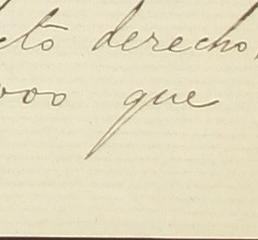 cto derecho,
que